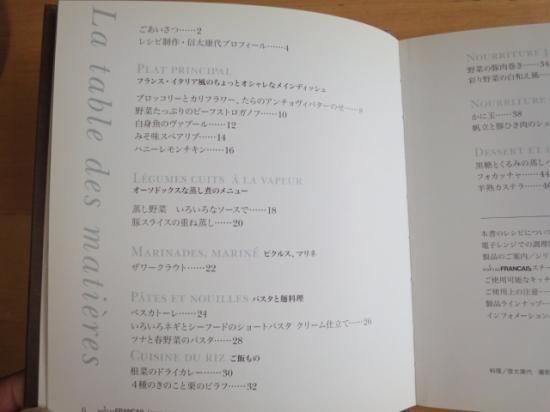 La table des matières
ごあいさつ……2
レシピ制作・信太康代プロフィール……4
PLAT PRINCIPAL
フランス・イタリア風のちょっとオシャレなメインディッシュ
ブロッコリーとカリフラワー、たらのアンチョヴィバターのせ…8
野菜たっぷりのビーフストロガノフ……10
白身魚のヴァプール……12
みそ味スペアリブ……14
ハニーレモンチキン……16
LÉGUMES CUITS À LA VAPEUR
オーソドックスな蒸し煮のメニュー
蒸し野菜 いろいろなソースで……18
豚スライスの重ね蒸し……20
MARINADES, MARINÉ ピクルス、マリネ
ザワークラウト……22
PÂTES ET NOUILLES パスタと麺料理
ペスカトーレ……24
いろいろネギとシーフードのショートパスタ クリーム仕立て…26
ツナと春野菜のパスタ……28
CUISINE DU RIZ ご飯もの
根菜のドライカレー……30
4種のきのこと栗のピラフ……32
6
NOURRITURE
野菜の豚肉巻き…34
彩り野菜の白和え風
NOURRITURE
かに玉……38
帆立と豚ひき肉のシュ
DESSERT ET
黒糖とくるみの蒸し
フォカッチャ……
半熟カステラ……
本書のレシピについて
電子レンジでの調理
製品のご案内／シリ
FRANCAIS スチー
ご使用可能なキッチ
ご使用上の注意…
製品ラインナップ…
インフォメーション…
料理／信太康代 撮影